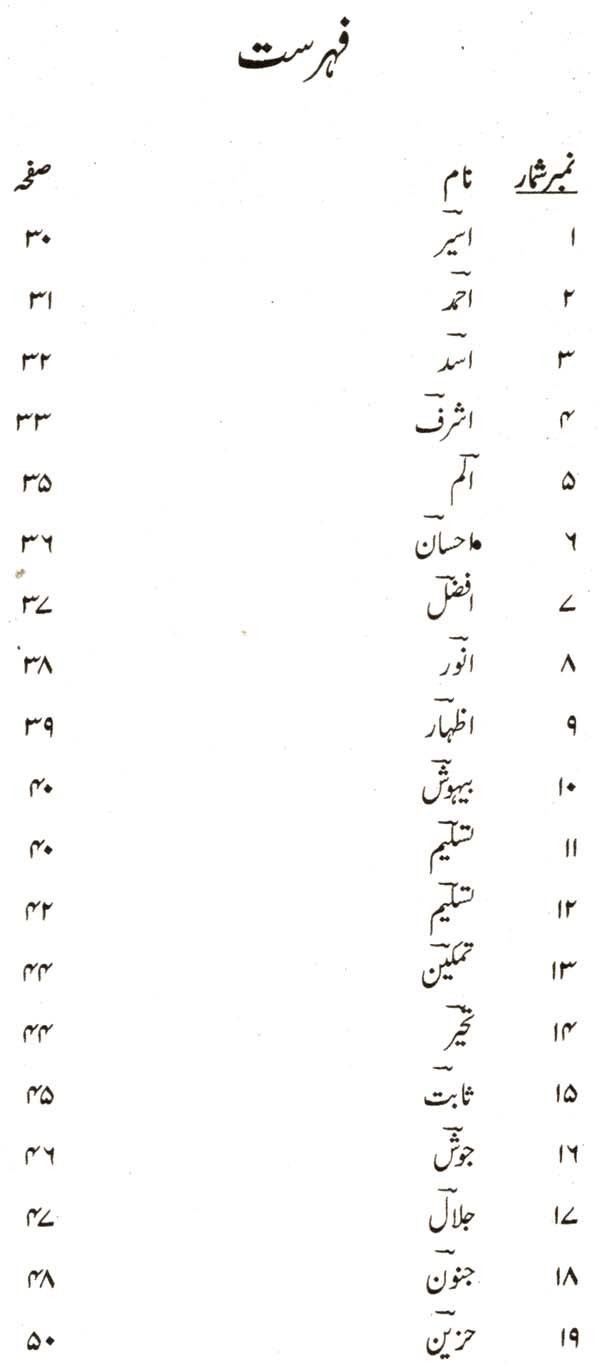 فہرست
نمبر شمار نام صفحہ
۱ اسیرؔ ۳۰
۲ احمدؔ ۳۱
۳ اسدؔ ۳۲
۴ اشرفؔ ۳۳
۵ المؔ ۳۵
۶ احسانؔ ۳۶
۷ افضلؔ ۳۷
۸ انورؔ ۳۸
۹ اظہارؔ ۳۹
۱۰ بیہوشؔ ۴۰
۱۱ تسلیمؔ ۴۰
۱۲ تسلیمؔ ۴۲
۱۳ تمکینؔ ۴۴
۱۴ تحیرؔ ۴۴
۱۵ ثابتؔ ۴۵
۱۶ جوشؔ ۴۶
۱۷ جلالؔ ۴۷
۱۸ جنونؔ ۴۸
۱۹ حزینؔ ۵۰